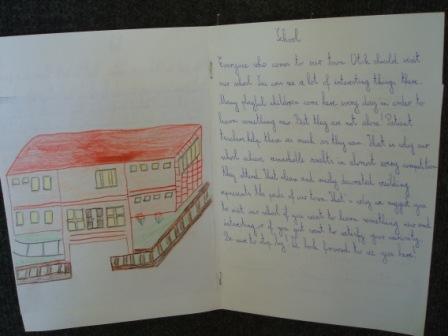 School
Everyone who comes to our town Otok should visit
our school. You can see a lot of interesting things there.
Many playful children come here every day in order to
learn something new. But they are not alone! Patient
teachers help them as much as they can. That is why our
school achieves remarkable results in almost every competition
they attend. That clean and nicely decorated building
represents the pride of our town. That's why we suggest you
to visit our school if you want to learn something new and
interesting or if you just want to satisfy your curiosity.
Be sure to stop by, we look forward to see you here!